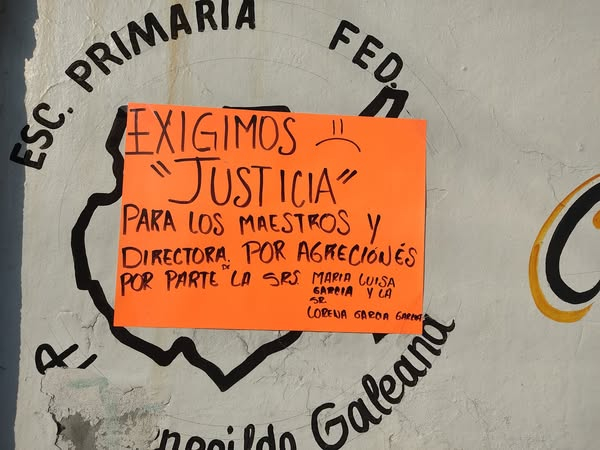 ESC. PRIMARIA FED.
EXIGIMOS
"JUSTICIA"
PARA LOS MAESTROS Y
DIRECTORA. POR AGRECIONÉS
POR PARTE DE LA SRS. MARIA LUISA
GARCIA Y LA
SR.
LORENA GARCIA
Galeana